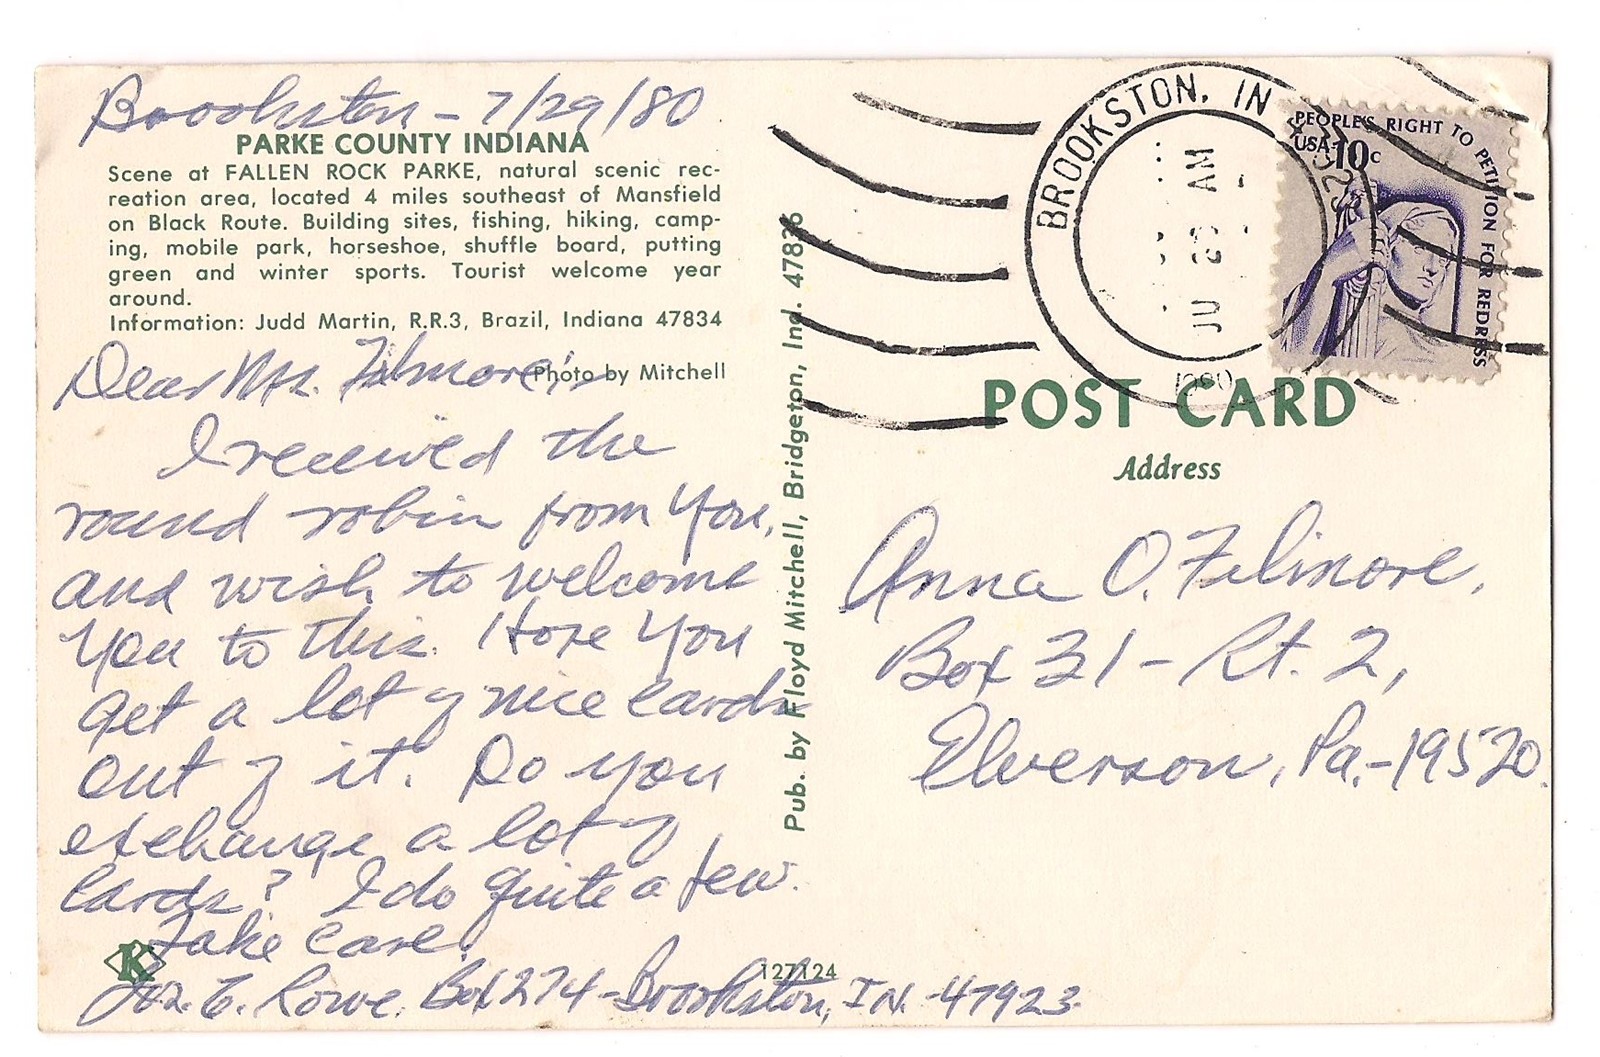 Brookston - 7/29/80
PARKE COUNTY INDIANA
Scene at FALLEN ROCK PARKE, natural scenic rec-
reation area, located 4 miles southeast of Mansfield
on Black Route. Building sites, fishing, hiking, camp-
ing, mobile park, horseshoe, shuffle board, putting
green and winter sports. Tourist welcome year
around.
Information: Judd Martin, R.R.3, Brazil, Indiana 47834
Photo by Mitchell
Dear Mrs. Filmore:-
I received the
round robin from you,
and wish to welcome
you to this. Hope you
get a lot of nice cards
out of it. Do you
exchange a lot of
cards? I do quite a few.
Take care.
E. Rowe. Box 274 - Brookston, IN. -47923
K
127124
Pub. by Floyd Mitchell, Bridgeton, Ind. 47836
BROOKSTON, IN
AM
1980
PEOPLE'S RIGHT TO PETITION FOR REDRESS
USA 10c
POST CARD
Address
Anna O. Filimore,
Box 31 - Rt. 2,
Elverson, Pa.-19520.